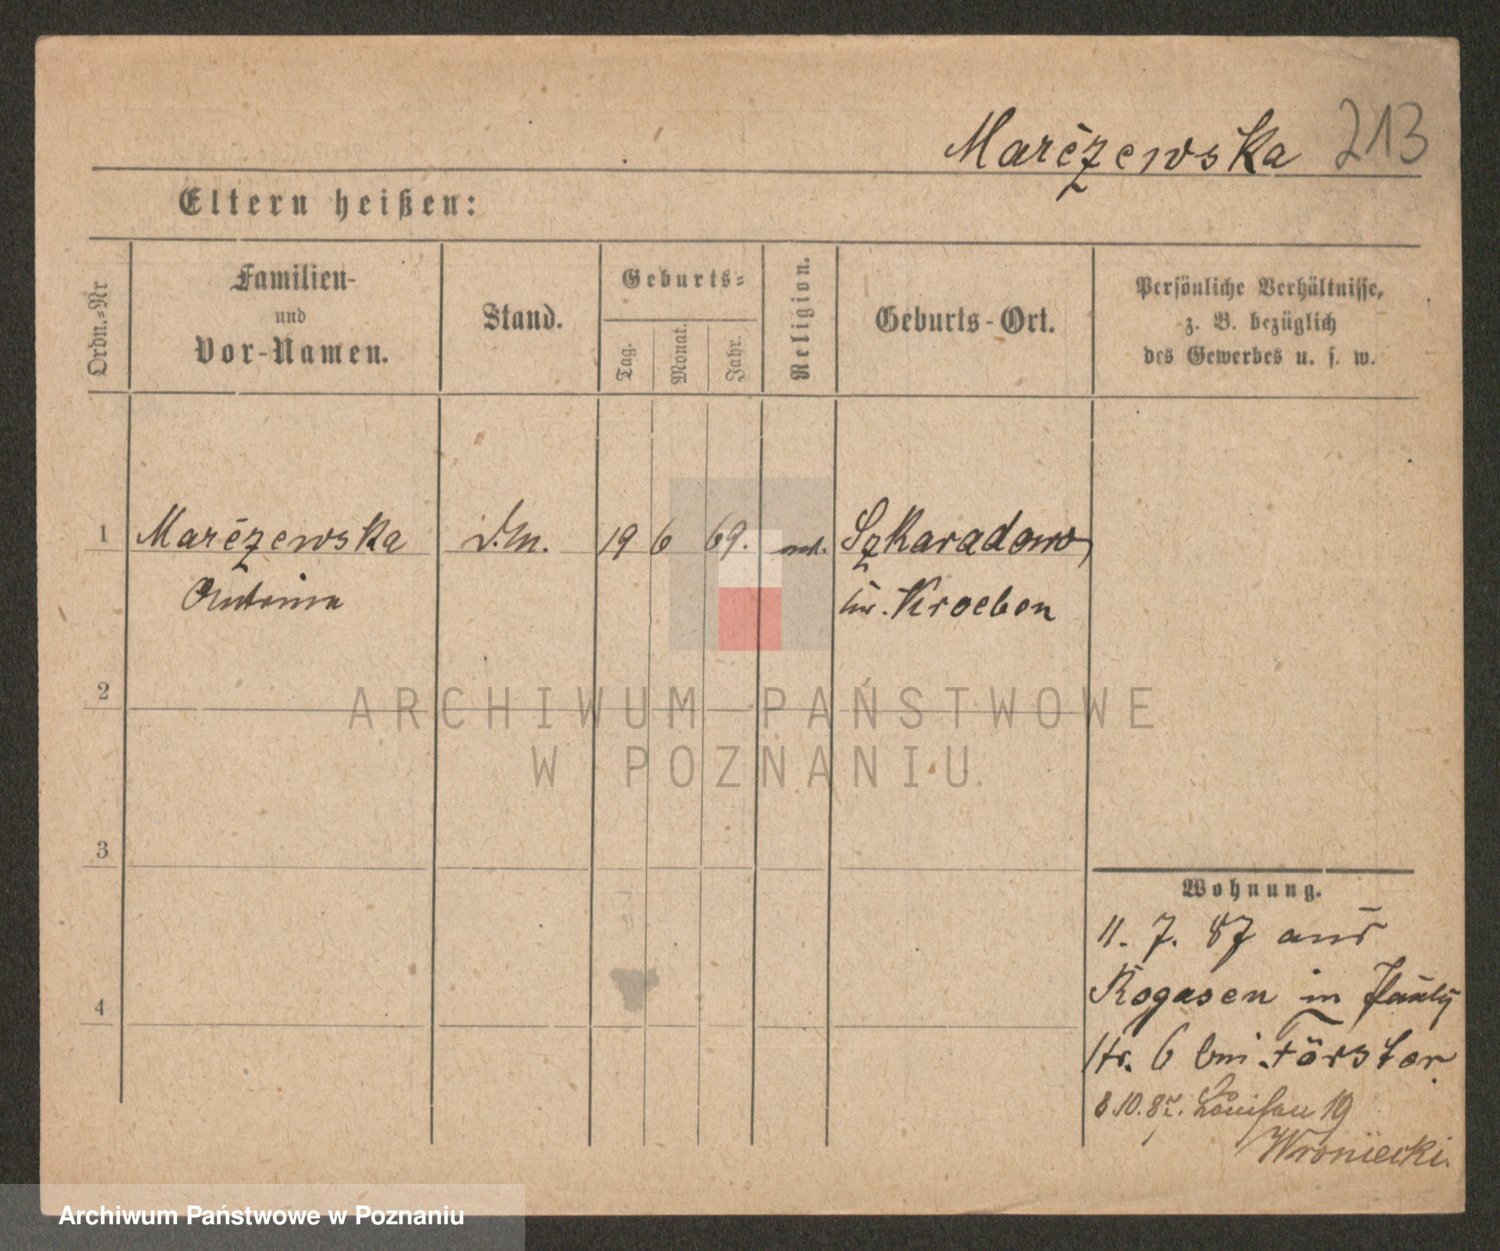 Marězewska 213
Eltern heißen:
Ordn.=Nr
Familien-
und
Vor-Namen.
Stand.
Geburts=
Tag.
Monat.
Jahr.
Religion.
Geburts-Ort.
Persönliche Verhältnisse,
z. B. bezüglich
des Gewerbes u. s. w.
1 Marězewska 19 6 69. Szkaradowo
Antonina Kr. Kroeben
2
ARCHIWUM PAŃSTWOWE
W POZNANIU
3
Wohnung.
11. 7. 87 aus
Rogasen in Pauly
4
str. 6 bei Förster.
8.10.87. Louisen 19
Wroniecki.
Archiwum Państwowe w Poznaniu